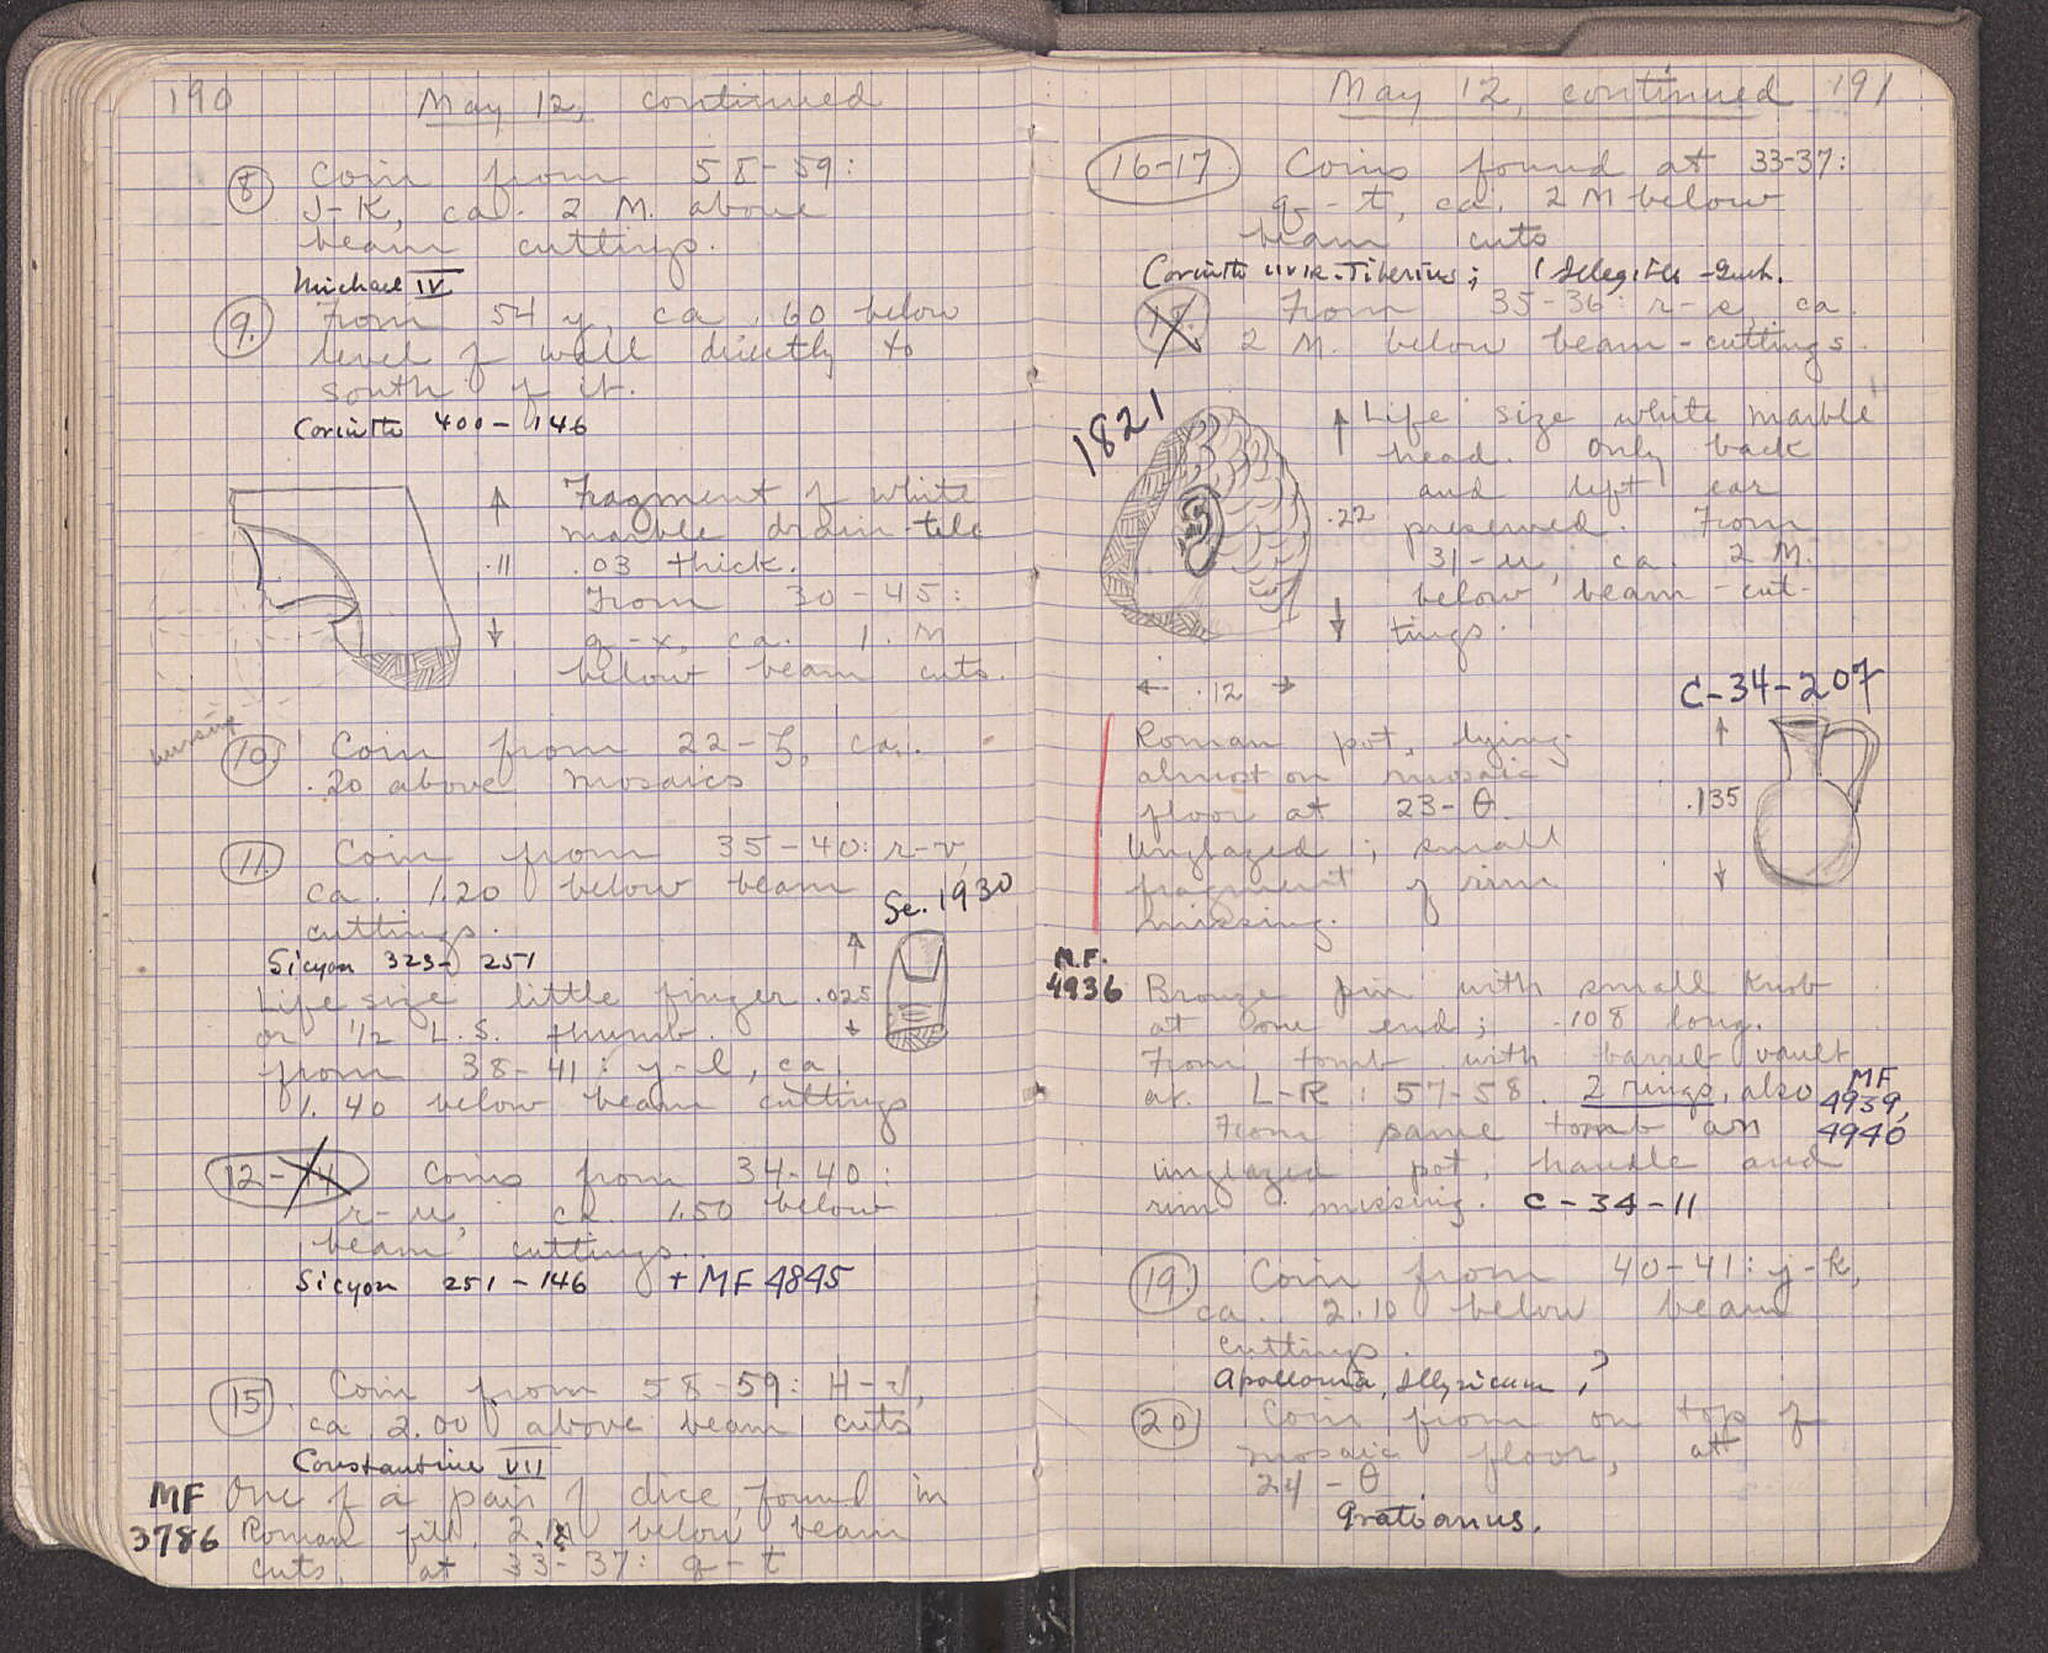 190
May 12, continued
8 Coin from 58-59:
J-K, ca. 2 M. above
beam cuttings.
Michael IV
9. From 54 y, ca .60 below
level of wall directly to
south of it.
Corinth 400-146
Fragment of white
marble drain-tile
.11 .03 thick.
From 30-45:
q-x, ca. 1. M
below beam cuts.
10. Coin from 22-ζ, ca.
.20 above mosaics
11. Coin from 35-40: r-v,
ca. 1.20 below beam
cuttings.
Sc. 1930
Sicyon 323-251
Life size little finger .025
or 1/2 L.S. thumb.
from 38-41: y-l, ca.
1.40 below beam cuttings
12-14 Coins from 34-40:
r-u, ca. 1.50 below
beam cuttings.
Sicyon 251-146 + MF 4845
15 Coin from 58-59: H-J,
ca 2.00 above beam cuts
Constantine VII
MF 3786
One of a pair of dice, found in
Roman fill, 2.M below beam
cuts, at 33-37: q-t
May 12, continued 191
16-17 Coins found at 33-37:
q-t, ca. 2 M below
beam cuts
Corinth IIVIR-Tiberius; 1 Illegible-Quch.
18. From 35-36: r-s, ca.
2 M. below beam-cuttings.
1821
Life size white marble
head. Only back
and left ear
.22 preserved. From
31-u, ca. 2 M.
below beam-cut-
tings.
.12
C-34-207
Roman pot, lying
almost on mosaic
floor at 23-θ.
.135
Unglazed; small
fragment of rim
missing.
M.F.
4936
Bronze pin with small knob
at one end; .108 long.
From tomb with barrel vault
at L-R: 57-58. 2 rings, also MF 4939, 4940
From same tomb an
unglazed pot, handle and
rim missing. C-34-11
19. Coin from 40-41: j-k,
ca. 2.10 below beam
cuttings.
Apollonia, Illyricum, ?
20 Coin from on top of
mosaic floor, at
24-θ
Gratianus.